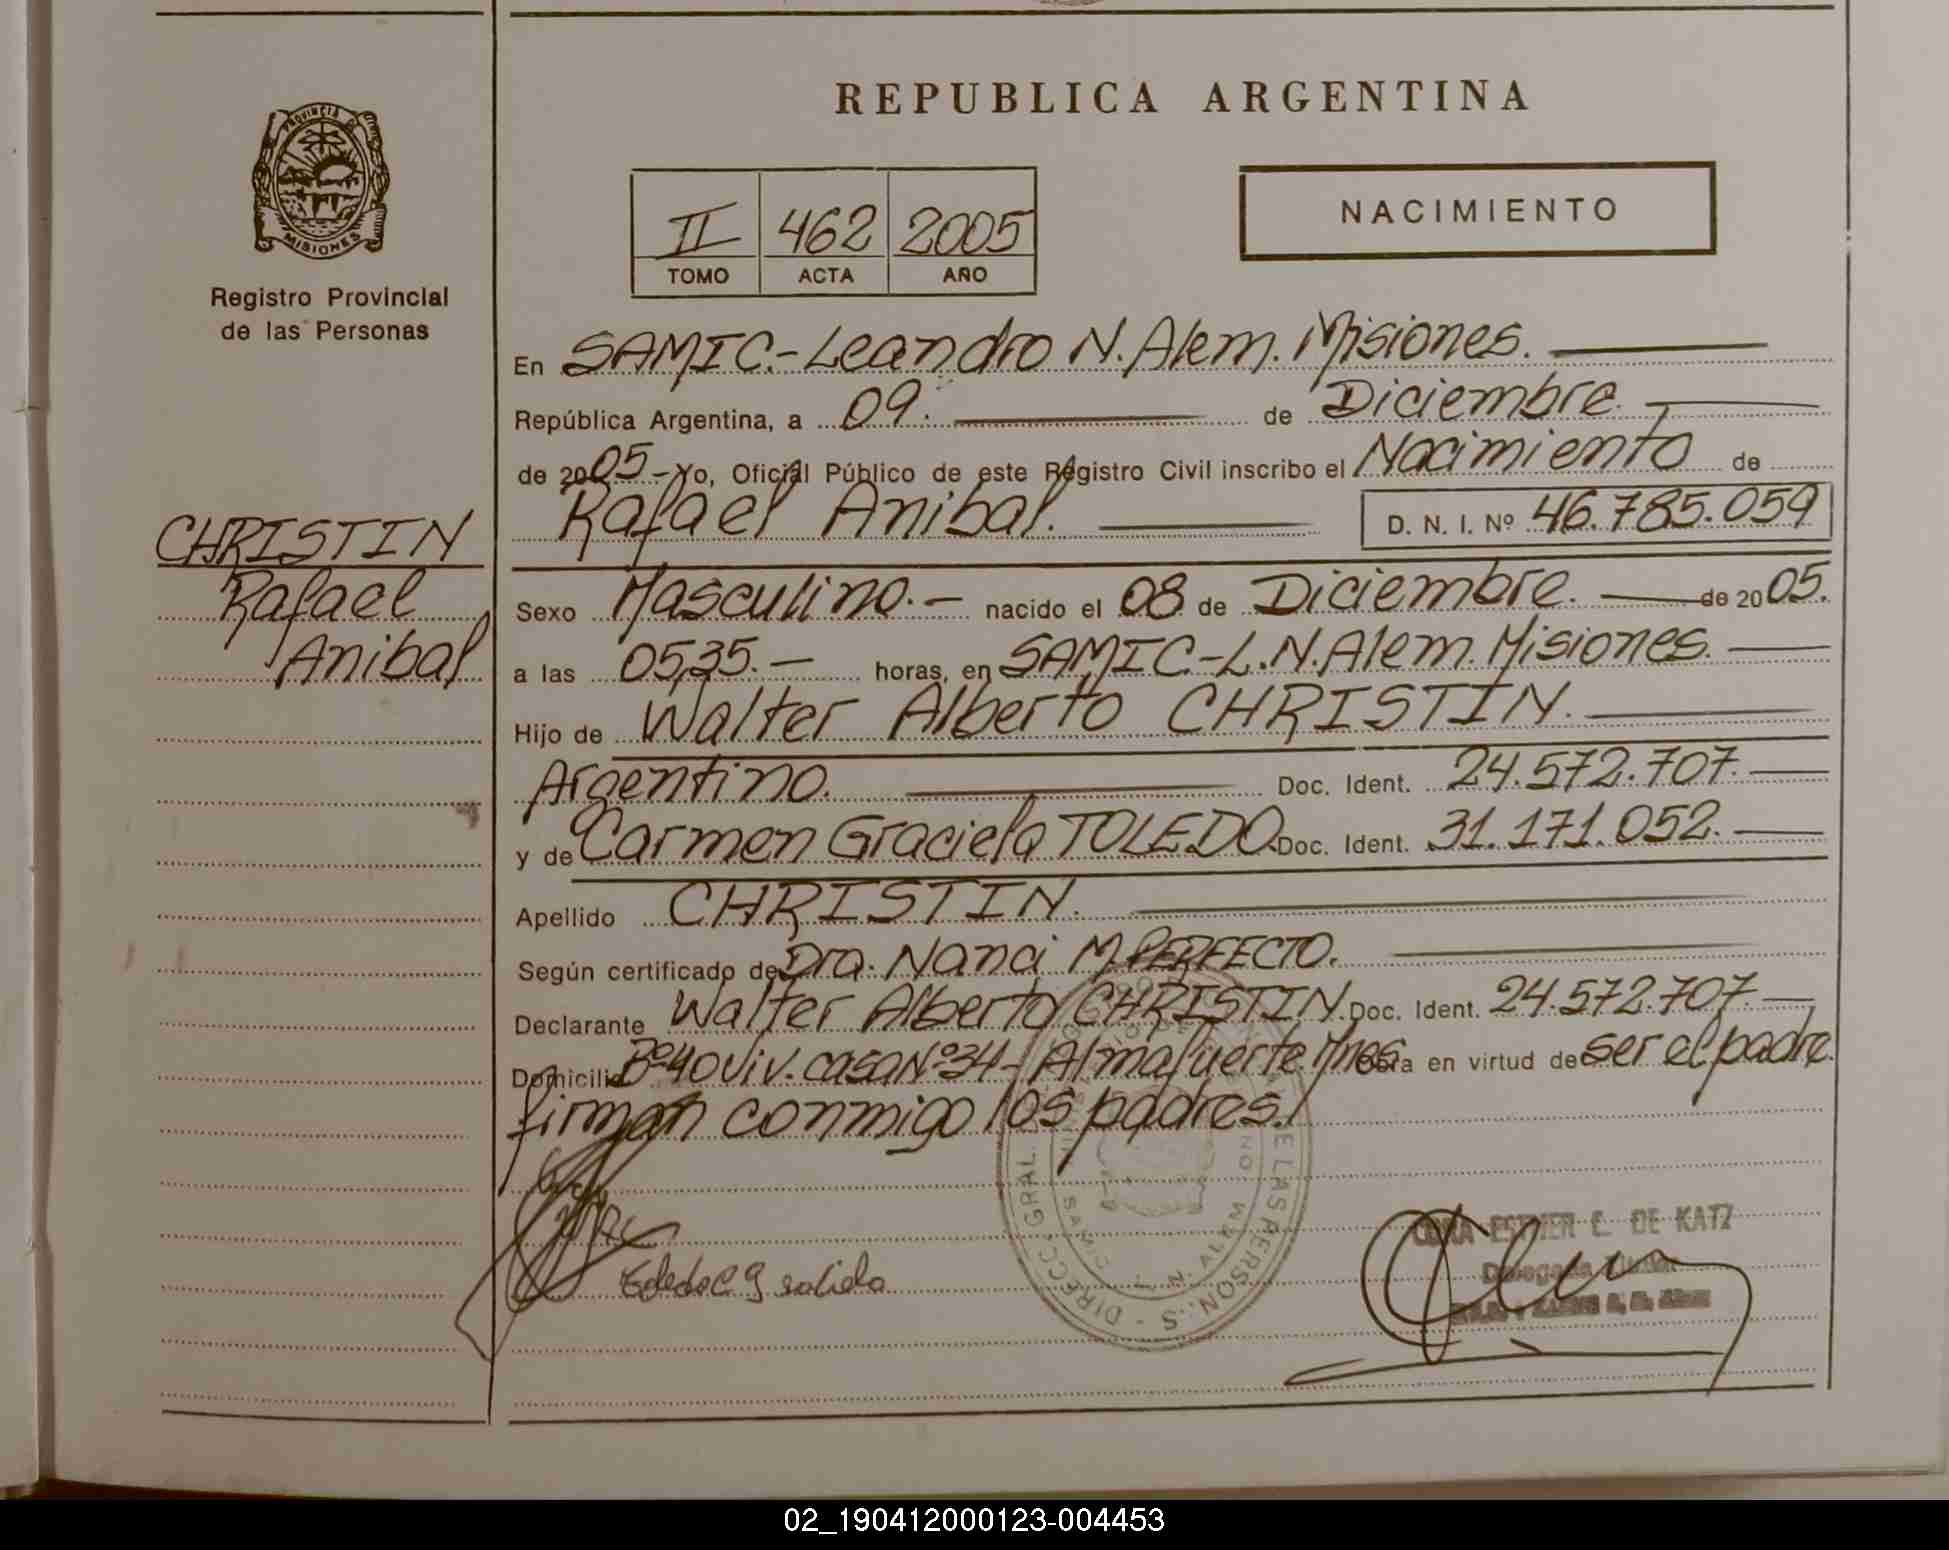 REPUBLICA ARGENTINA
PROVINCIA DE
MISIONES
Registro Provincial
de las Personas
II 462 2005
TOMO ACTA AÑO
NACIMIENTO
En SAMIC.- Leandro N. Alem. Misiones.
República Argentina, a 09. de Diciembre.
de 2005 - Yo, Oficial Público de este Registro Civil inscribo el Nacimiento de
Rafael Anibal. D. N. I. Nº 46.785.059
CHRISTIN
Rafael
Anibal
Sexo Masculino. - nacido el 08 de Diciembre. de 2005.
a las 05,35. - horas, en SAMIC-L.N.Alem. Misiones.
Hijo de Walter Alberto CHRISTIN.
Argentino. Doc. Ident. 24.572.707.
y de Carmen Graciela TOLEDO. Doc. Ident. 31.171.052.
Apellido CHRISTIN.
Según certificado de Dra. Nanci M. PERFECTO.
Declarante Walter Alberto CHRISTIN. Doc. Ident. 24.572.707.
Domicilio Bº 40 Viv. casa Nº 34 - Almafuerte. Mnes. Obra en virtud de ser el padre.
firman conmigo los padres.
DIRECC. GRAL. DE LAS PERSONAS
SAMIC L. N. ALEM
ESTHER E. DE KATZ
02_190412000123-004453